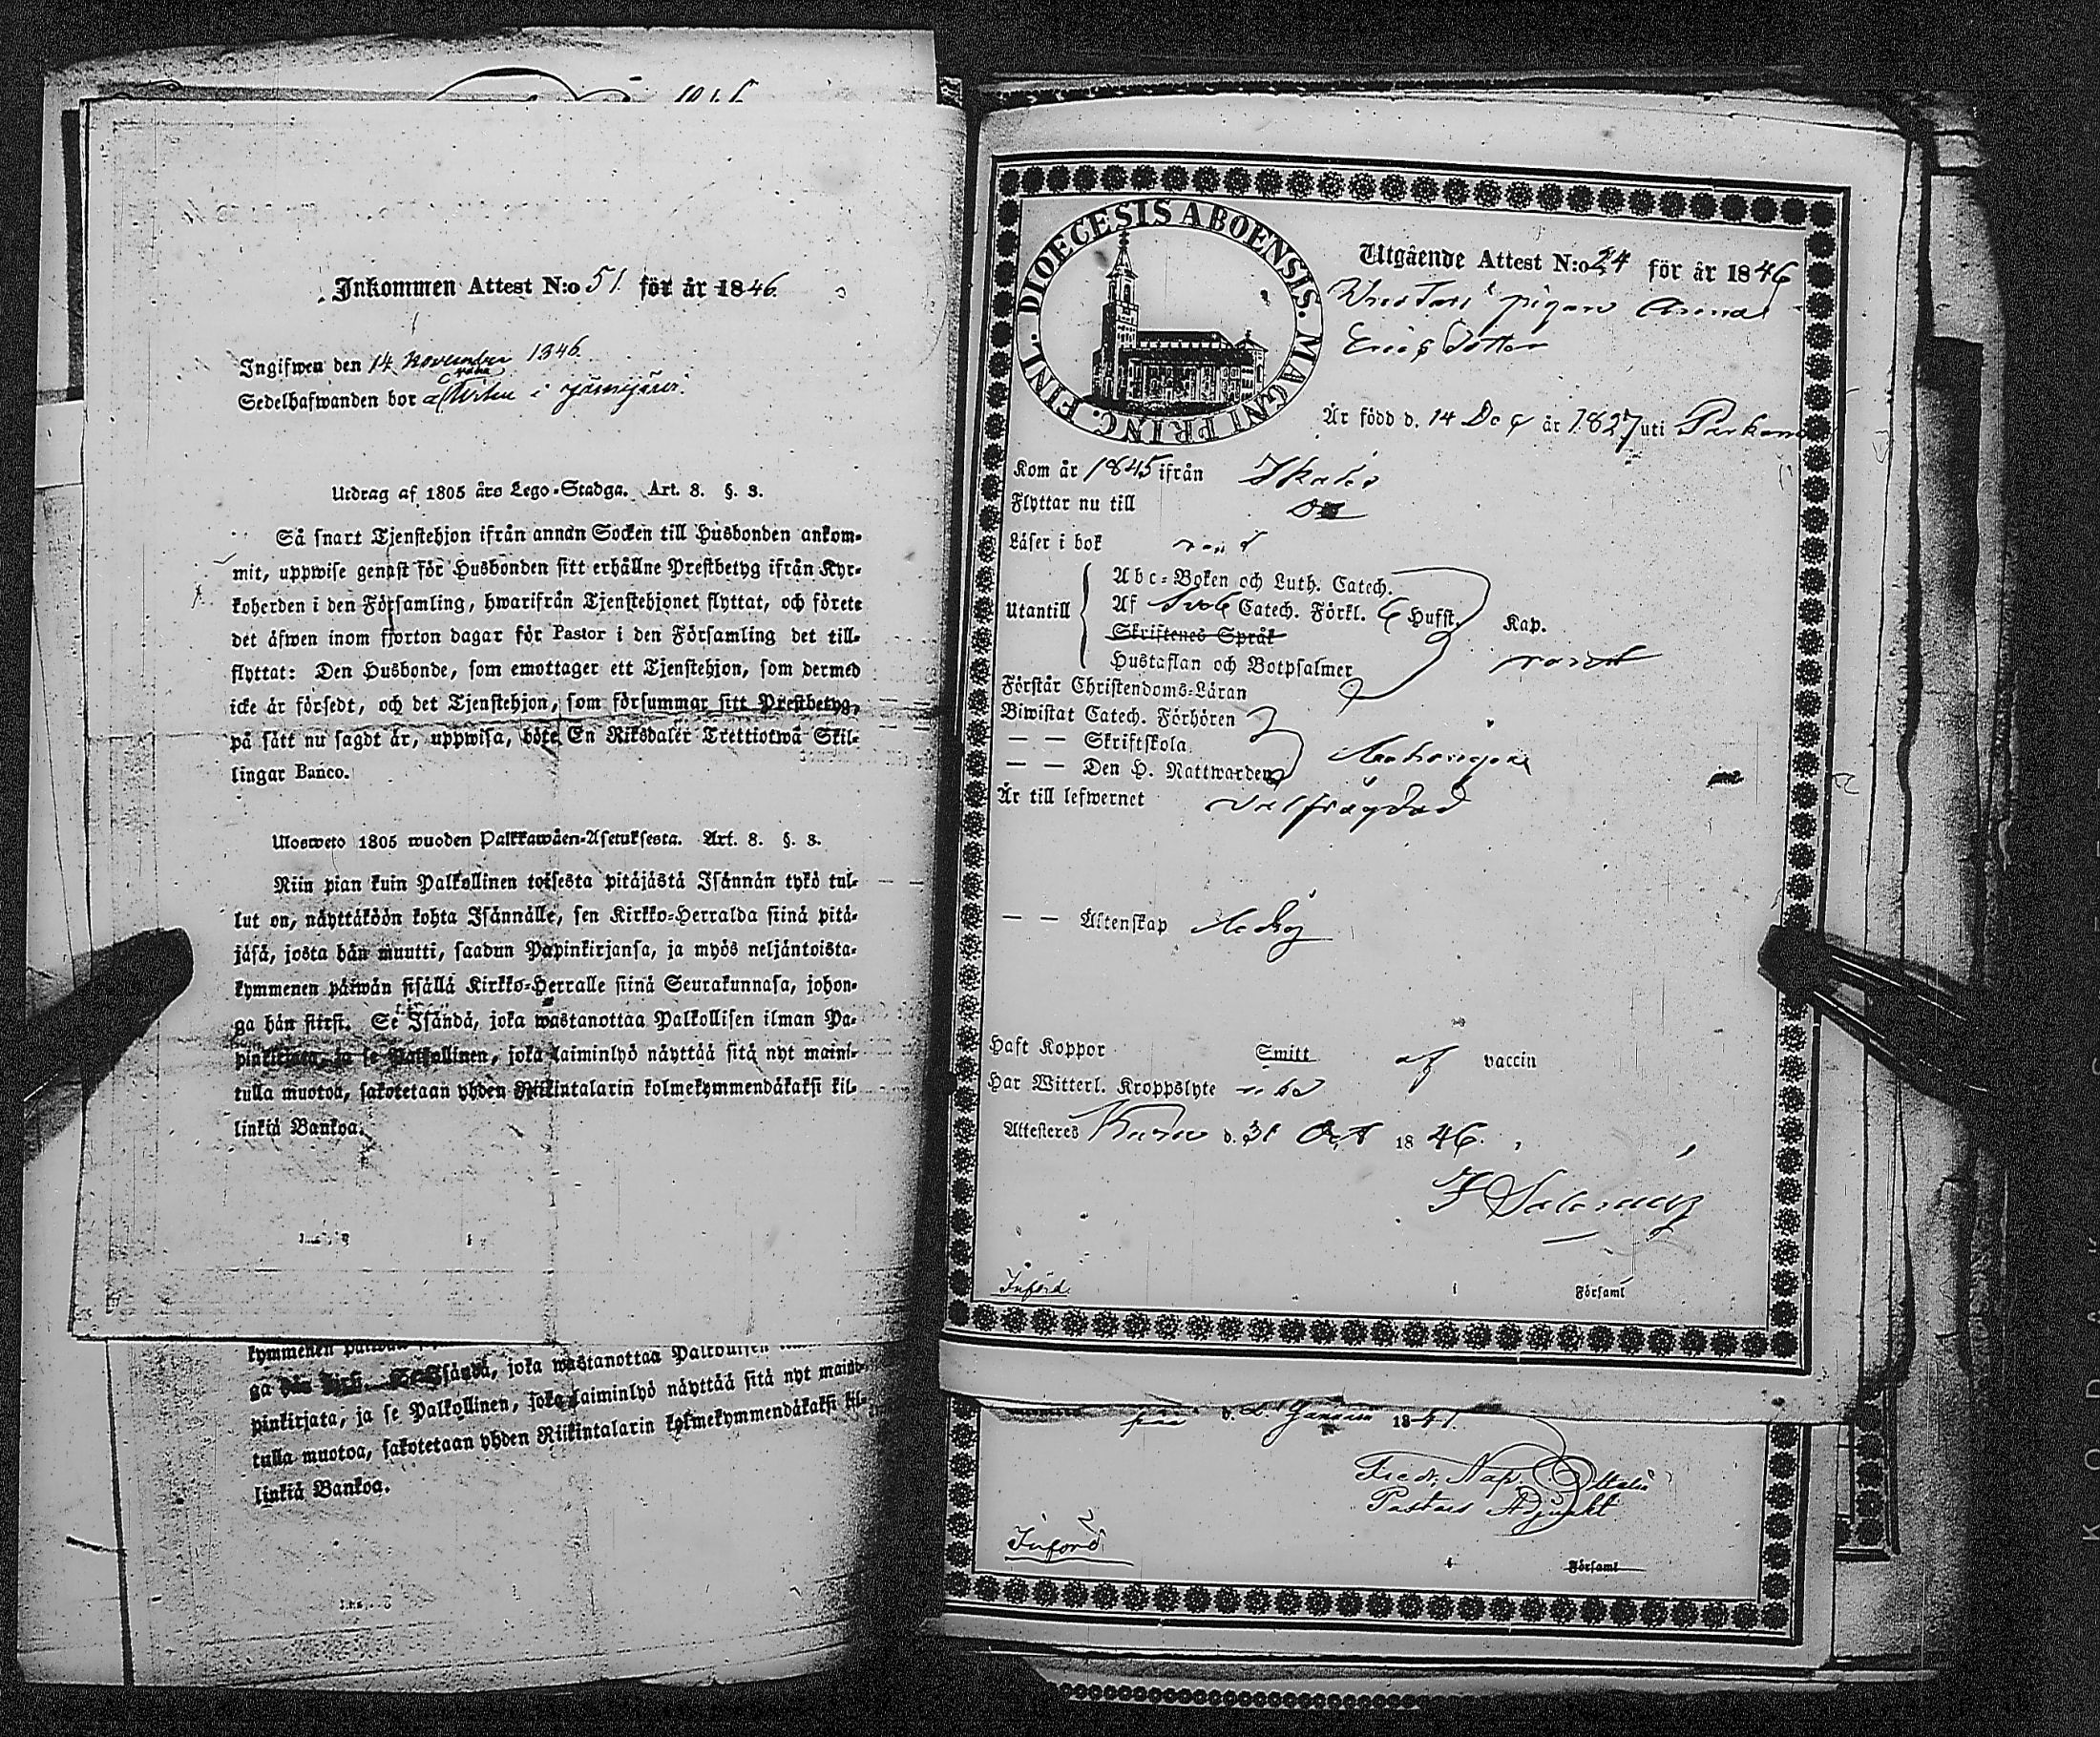 Inkommen Attest N:o 51 för år 1846.
Ingifwen den 14 November 1846.
Sedelhafwanden bor å i
Utdrag af 1805 års Lego-Stadga. Art. 8. §. 3.
Så snart Tjenstehjon ifrån annan Socken till Husbonden ankom-
mit, uppwise genast för Husbonden sitt erhållne Prestbetyg ifrån Kyr-
koherden i den Församling, hwarifrån Tjenstehjonet flyttat, och förete
det äfwen inom fjorton dagar för Pastor i den Församling det till-
flyttat: Den Husbonde, som emottager ett Tjenstehjon, som dermed
icke är försedt, och det Tjenstehjon, som försummar sitt Prestbetyg,
på sätt nu sagdt är, uppwisa, böte En Riksdaler Trettiotwå Skil-
lingar Banco.
Ulosweto 1805 wuoden Palkkawäen-Asetuksesta. Art. 8. §. 3.
Niin pian kuin Palkollinen toisesta pitäjästä Isännän tykö tul-
lut on, näyttäköön kohta Isännälle, sen Kirkko-Herralda siinä pitä-
jäsä, josta hän muutti, saadun Papinkirjansa, ja myös neljäntoista-
kymmenen päiwän sisällä Kirkko-Herralle siinä Seurakunnasa, johon-
ga hän siirsi. Se Isändä, joka wastanottaa Palkollisen ilman Pa-
pinkirjata, ja se Palkollinen, joka laiminlyö näyttää sitä nyt maini-
tulla muotoa, sakotetaan yhden Riikintalarin kolmekymmendäkaksi kil-
linkiä Bankoa.
kymmenen
ga Isändä, joka wastanottaa Palkollisen
pinkirjata, ja se Palkollinen, joka laiminlyö näyttää sitä nyt maini-
tulla muotoa, sakotetaan yhden Riikintalarin kolmekymmendäkaksi kil-
linkiä Bankoa.
DIOECESIS ABOENSIS. MAGNI PRINC. FINL.
Utgående Attest N:o 24 för år 1846
pigan Anna
Ericsdotter
Är född d. 14 Dec är 1827 uti Parkano
Kom år 1845 ifrån Ikalis
Flyttar nu till Do
Läser i bok
Utantill
Abc-Boken och Luth. Catech.
Af Catech. Förkl. 6 Hufst. Kap.
Skriftenes Språk
Hustaflan och Botpsalmer
Förstår Christendoms-Läran
Biwistat Catech. Förhören
— — Skriftskola
— — Den H. Nattwarden
Är till lefwernet välfrägdad
— — Äktenskap ledig
Haft Koppor Smitt af vaccin
Har Witterl. Kroppslyte
Attesteres Kuru d. 31 Oct 1846.
Införd. Församl
d. 2 Januari 18
Fredr. Nap.
Pastors Adjunkt
Införd
Församl
KODAK